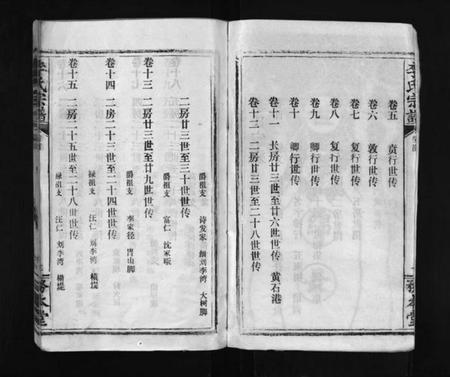 李氏宗谱
卷五 贡行世传
卷六 敦行世传
卷七 复行世传
卷八 复行世传
卷九 卿行世传
卷十 卿行世传
卷十一 长房廿三世至廿六世世传 黄石港
卷十二 二房廿三世至二十八世世传
二房廿三世至三十世世传
爵祖支 诗发家 细刘李湾 大树脚
卷十三 二房廿三世至廿九世世传
爵祖支 富仁 沈家畈
爵祖支 李家径 山脚
卷十四 二房二十三世至二十四世世传
禄祖支 汪仁 刘李湾 横堤
卷十五 二房二十五世至二十八世世传
禄祖支 汪仁 刘李湾 横堤
李氏宗谱
本堂